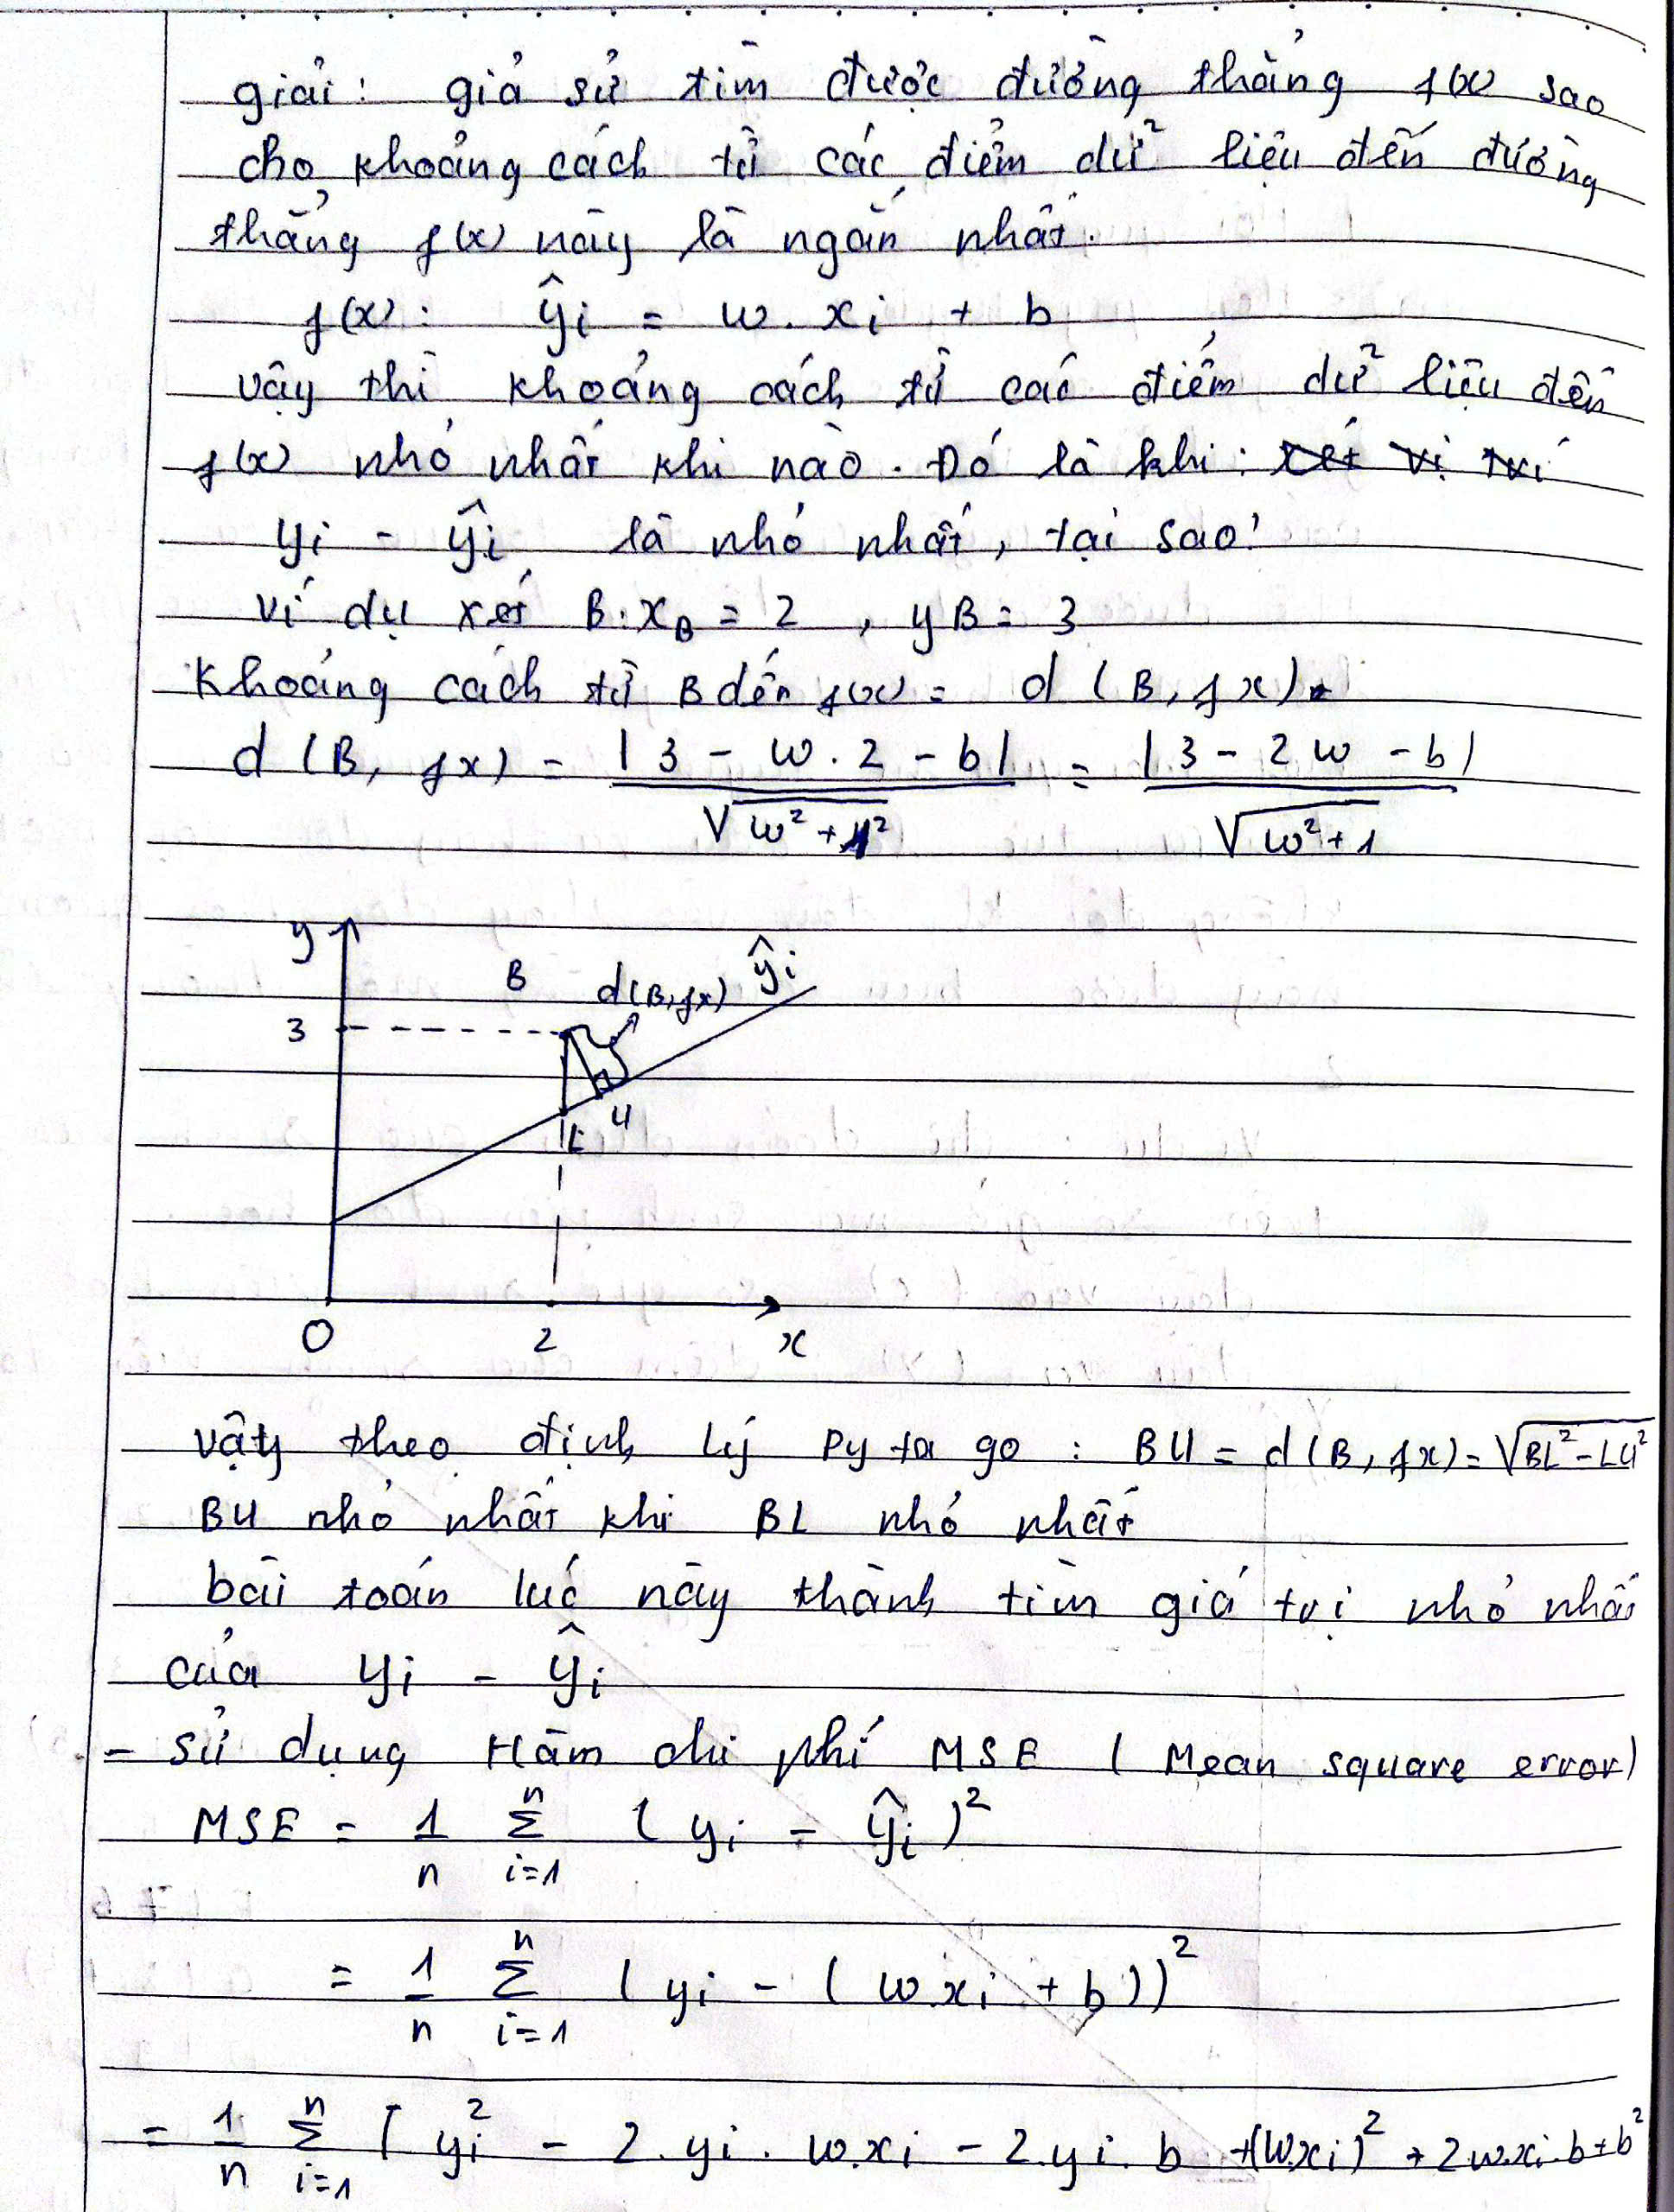 giải: giả sử tìm được đường thẳng f(x) sao
cho khoảng cách từ các điểm dữ liệu đến đường
thẳng f(x) này là ngắn nhất.
f(x): ŷi = w. xi + b
vậy thì khoảng cách từ các điểm dữ liệu đến
f(x) nhỏ nhất khi nào. Đó là khi: xét vị trí
yi - ŷi là nhỏ nhất, tại sao?
ví dụ xét B: xB = 2, yB = 3
Khoảng cách từ B đến f(x) = d (B, fx)
d (B, fx) = |3 - w.2 - b| / √(w² + 1²) = |3 - 2w - b| / √(w² + 1)
y
B d(B, fx) ŷi
3
L H
0 2 x
vậy theo định lý Py ta go: BH = d(B, fx) = √(BL² - LH²)
BH nhỏ nhất khi BL nhỏ nhất
bài toán lúc này thành tìm giá trị nhỏ nhất
của yi - ŷi
- sử dụng Hàm chi phí MSE (Mean square error)
MSE = 1/n Σ i=1 n (yi - ŷi)²
= 1/n Σ i=1 n (yi - (w.xi + b))²
= 1/n Σ i=1 n [yi² - 2.yi.w.xi - 2.yi.b + (w.xi)² + 2w.xi.b + b²